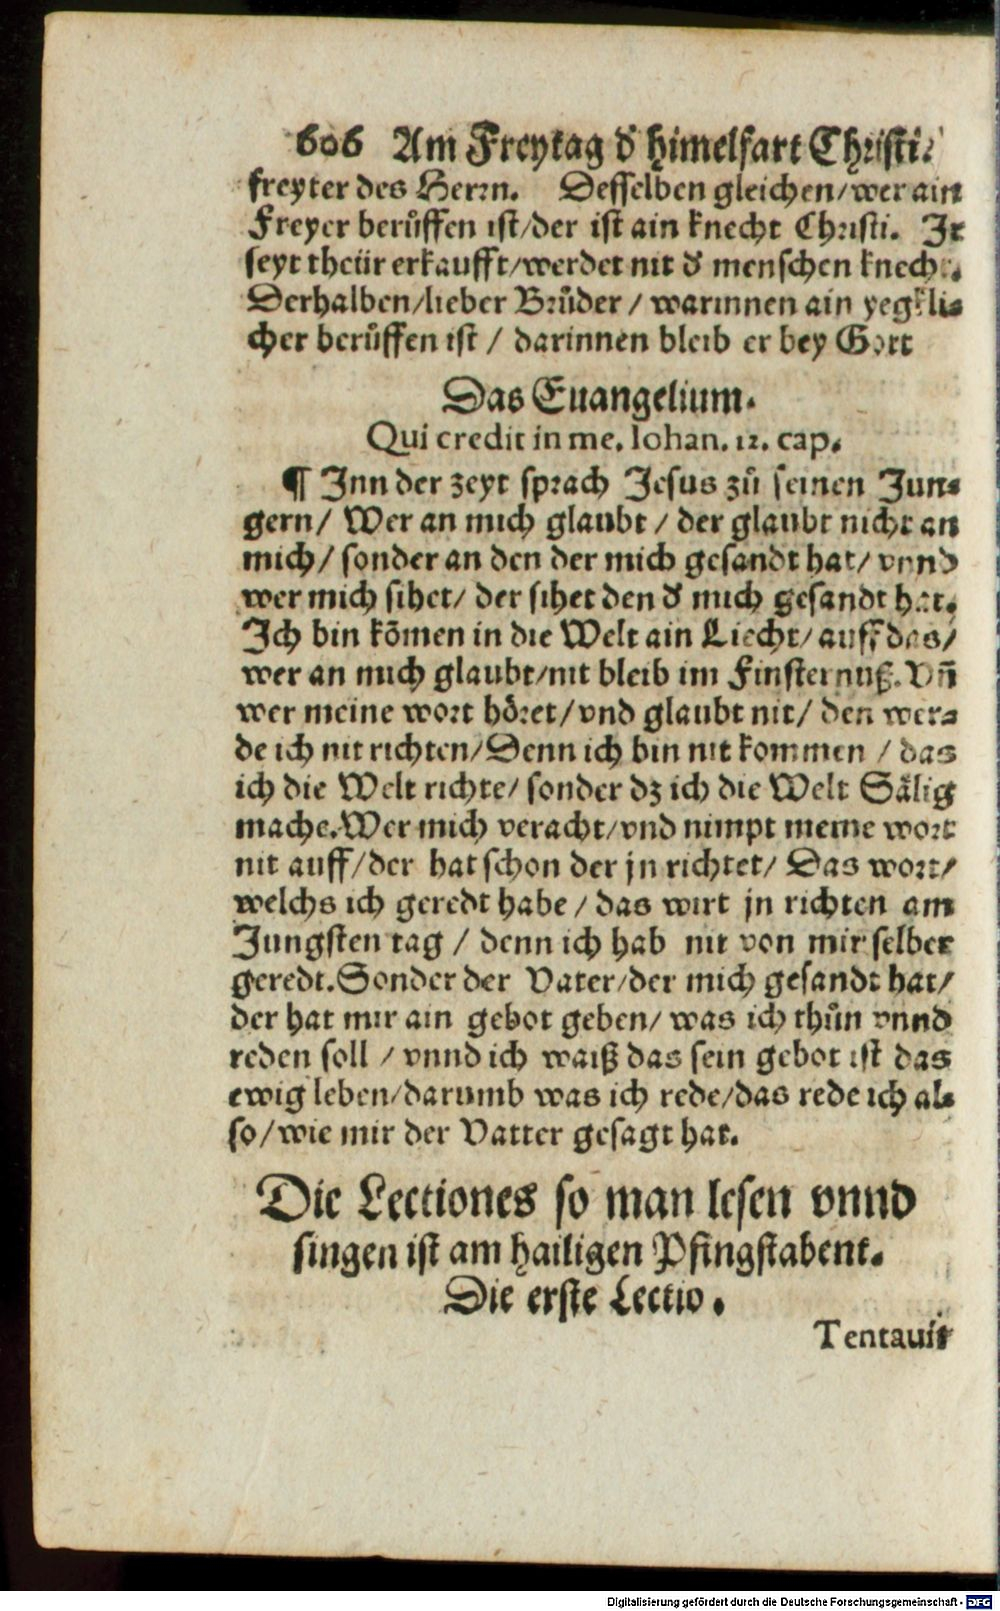 606 Am Freytag đ himelfart Christi.
freyter des Herrn. Desselben gleichen/wer ain
Freyer berůffen ist/der ist ain knecht Christi. Ir
seyt theür erkaufft/werdet nit đ menschen knecht.
Derhalben/lieber Brůder / warinnen ain yegkli-
cher berůffen ist / darinnen bleib er bey Gott
Das Euangelium.
Qui credit in me. Iohan. 12. cap.
¶ Inn der zeyt sprach Jesus zů seinen Jun-
gern/ Wer an mich glaubt / der glaubt nicht an
mich/ sonder an den der mich gesandt hat/ vnnd
wer mich sihet/ der sihet den đ mich gesandt hat.
Ich bin kõmen in die Welt ain Liecht/ auff das/
wer an mich glaubt/nit bleib im Finsternuß. Vñ
wer meine wort höret/vnd glaubt nit/ den wer-
de ich nit richten/Denn ich bin nit kommen / das
ich die Welt richte/ sonder dz ich die Welt Sälig
mache. Wer mich veracht/vnd nimpt meine wort
nit auff/der hat schon der jn richtet/ Das wort/
welchs ich geredt habe / das wirt jn richten am
Jungsten tag / denn ich hab nit von mir selber
geredt. Sonder der Vater/der mich gesandt hat/
der hat mir ain gebot geben/ was ich thůn vnnd
reden soll / vnnd ich waiß das sein gebot ist das
ewig leben/darumb was ich rede/das rede ich al-
so/wie mir der Vatter gesagt hat.
Die Lectiones so man lesen vnnd
singen ist am hailigen Pfingstabent.
Die erste Lectio.
Tentauit
Digitalisierung gefördert durch die Deutsche Forschungsgemeinschaft - DFG